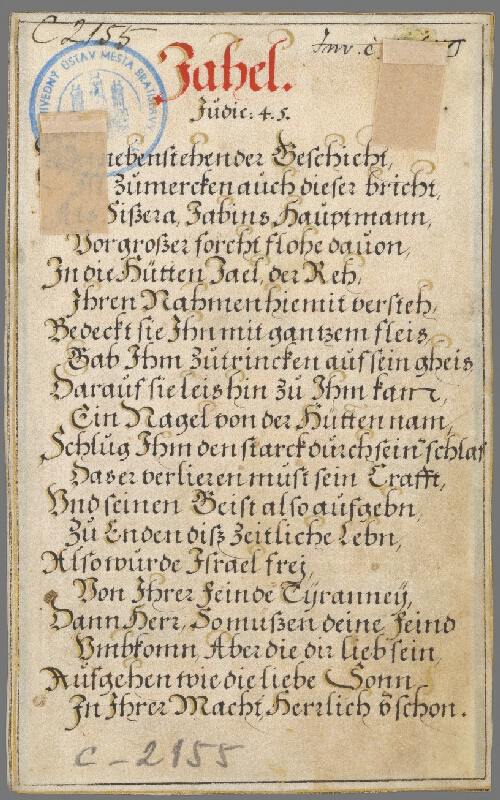 C 2155
Inv. č
VEDNÝ ÚSTAV MESTA BRATISLAVY
Jahel.
Judic: 4. 5.
nebenstehender Geschicht,
Zumercken auch dieser bricht,
Sißera, Jabins Hauptmann,
Vor großer forcht flohe dauon,
In die Hütten Jael, der Reh,
Ihren Nahmen hiemit versteh,
Bedeckt sie Ihn mit gantzem fleis,
Gab Ihm Zutrincken auf sein gheis
Darauf sie leis hin zu Ihm kam,
Ein Nagel von der Hütten nam,
Schlug Ihm den starck durch sein schlaf
Das er verlieren must sein Crafft,
Vnd seinen Geist also aufgebn,
Zu Enden disz Zeitliche Lebn,
Also wurde Israel frej,
Von Ihrer Feinde Tyranneÿ,
Dann Herr, So mußen deine Feind
Vmbkomn, Aber die dir lieb sein,
Aufgehen wie die liebe Sonn,
In Ihrer Macht, Herrlich schon.
C - 2155